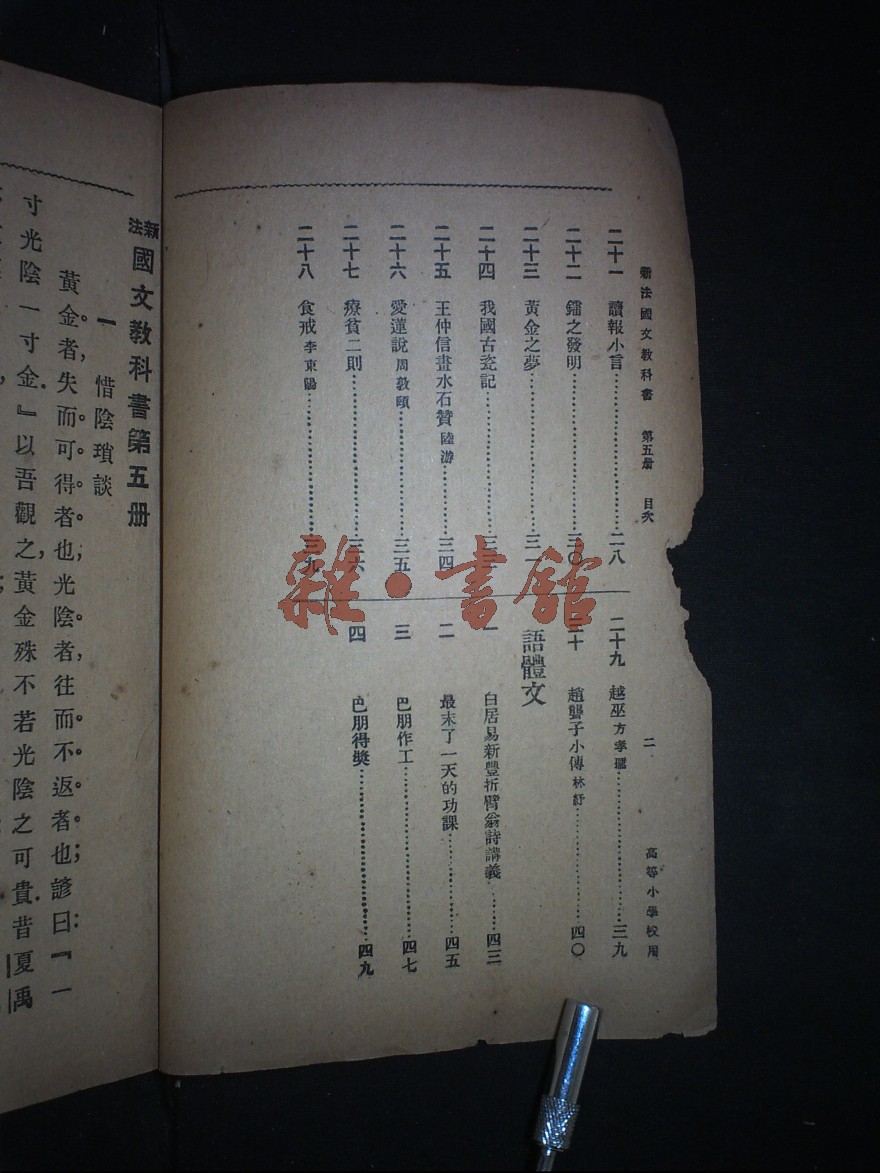 新法國文教科書 第五册 目次 二 高等小學校用
二十一 讀報小言 二八
二十二 鐳之發明 三〇
二十三 黃金之夢 三一
二十四 我國古瓷記
二十五 王仲信畫水石贊 陸游 三四
二十六 愛蓮說 周敦頤 三五
二十七 療貧二則 三六
二十八 食戒 李東陽 三九
二十九 越巫 方孝孺 三九
三十 趙聾子小傳 林紓 四〇
語體文
一 白居易新豐折臂翁詩講義 四三
二 最末了一天的功課 四五
三 巴朋作工 四七
四 巴朋得獎 四九
新法國文教科書第五册
一 惜陰瑣談
黃金者,失而可得者也;光陰者,往而不返者也;諺曰:『一
寸光陰一寸金』以吾觀之,黃金殊不若光陰之可貴.昔夏禹
雜·書館